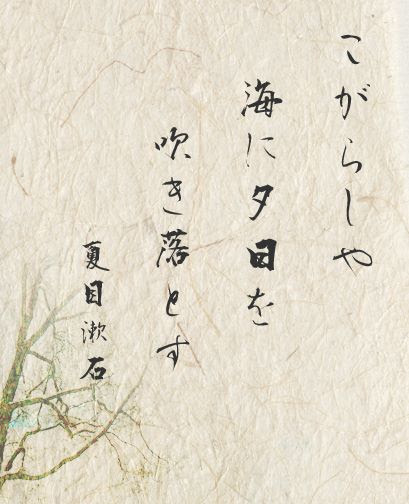 こがらしや
海に夕日を
吹き落とす
夏目漱石